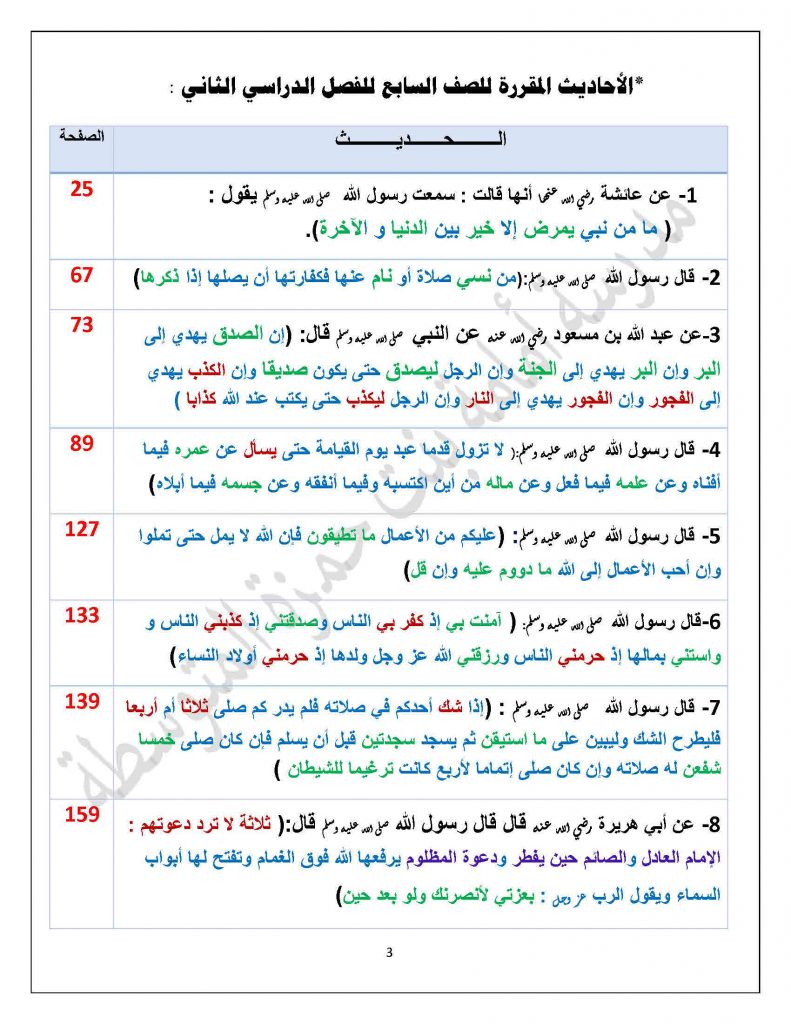 *الأحاديث المقررة للصف السابع للفصل الدراسي الثاني :
الـــحـــديـــث
الصفحة
1- عن عائشة رضي الله عنها أنها قالت : سمعت رسول الله صلى الله عليه وسلم يقول :
( ما من نبي يمرض إلا خير بين الدنيا و الآخرة).
25
2- قال رسول الله صلى الله عليه وسلم:(من نسي صلاة أو نام عنها فكفارتها أن يصلها إذا ذكرها)
67
3-عن عبد الله بن مسعود رضي الله عنه عن النبي صلى الله عليه وسلم قال: (إن الصدق يهدي إلى
البر وإن البر يهدي إلى الجنة وإن الرجل ليصدق حتى يكون صديقا وإن الكذب يهدي
إلى الفجور وإن الفجور يهدي إلى النار وإن الرجل ليكذب حتى يكتب عند الله كذابا )
73
4- قال رسول الله صلى الله عليه وسلم:( لا تزول قدما عبد يوم القيامة حتى يسأل عن عمره فيما
أفناه وعن علمه فيما فعل وعن ماله من أين اكتسبه وفيما أنفقه وعن جسمه فيما أبلاه)
89
5- قال رسول الله صلى الله عليه وسلم: (عليكم من الأعمال ما تطيقون فإن الله لا يمل حتى تملوا
وإن أحب الأعمال إلى الله ما دووم عليه وإن قل)
127
6-قال رسول الله صلى الله عليه وسلم: ( آمنت بي إذ كفر بي الناس وصدقتني إذ كذبني الناس و
واستني بمالها إذ حرمني الناس ورزقني الله عز وجل ولدها إذ حرمني أولاد النساء)
133
7- قال رسول الله صلى الله عليه وسلم : (إذا شك أحدكم في صلاته فلم يدر كم صلى ثلاثا أم أربعا
فليطرح الشك وليبين على ما استيقن ثم يسجد سجدتين قبل أن يسلم فإن كان صلى خمسا
شفعن له صلاته وإن كان صلى إتماما لأربع كانت ترغيما للشيطان )
139
8- عن أبي هريرة رضي الله عنه قال قال رسول الله صلى الله عليه وسلم قال:( ثلاثة لا ترد دعوتهم :
الإمام العادل والصائم حين يفطر ودعوة المظلوم يرفعها الله فوق الغمام وتفتح لها أبواب
السماء ويقول الرب عز وجل : بعزتي لأنصرنك ولو بعد حين)
159
مدرسة أمامة بنت حمزة المتوسطة
3